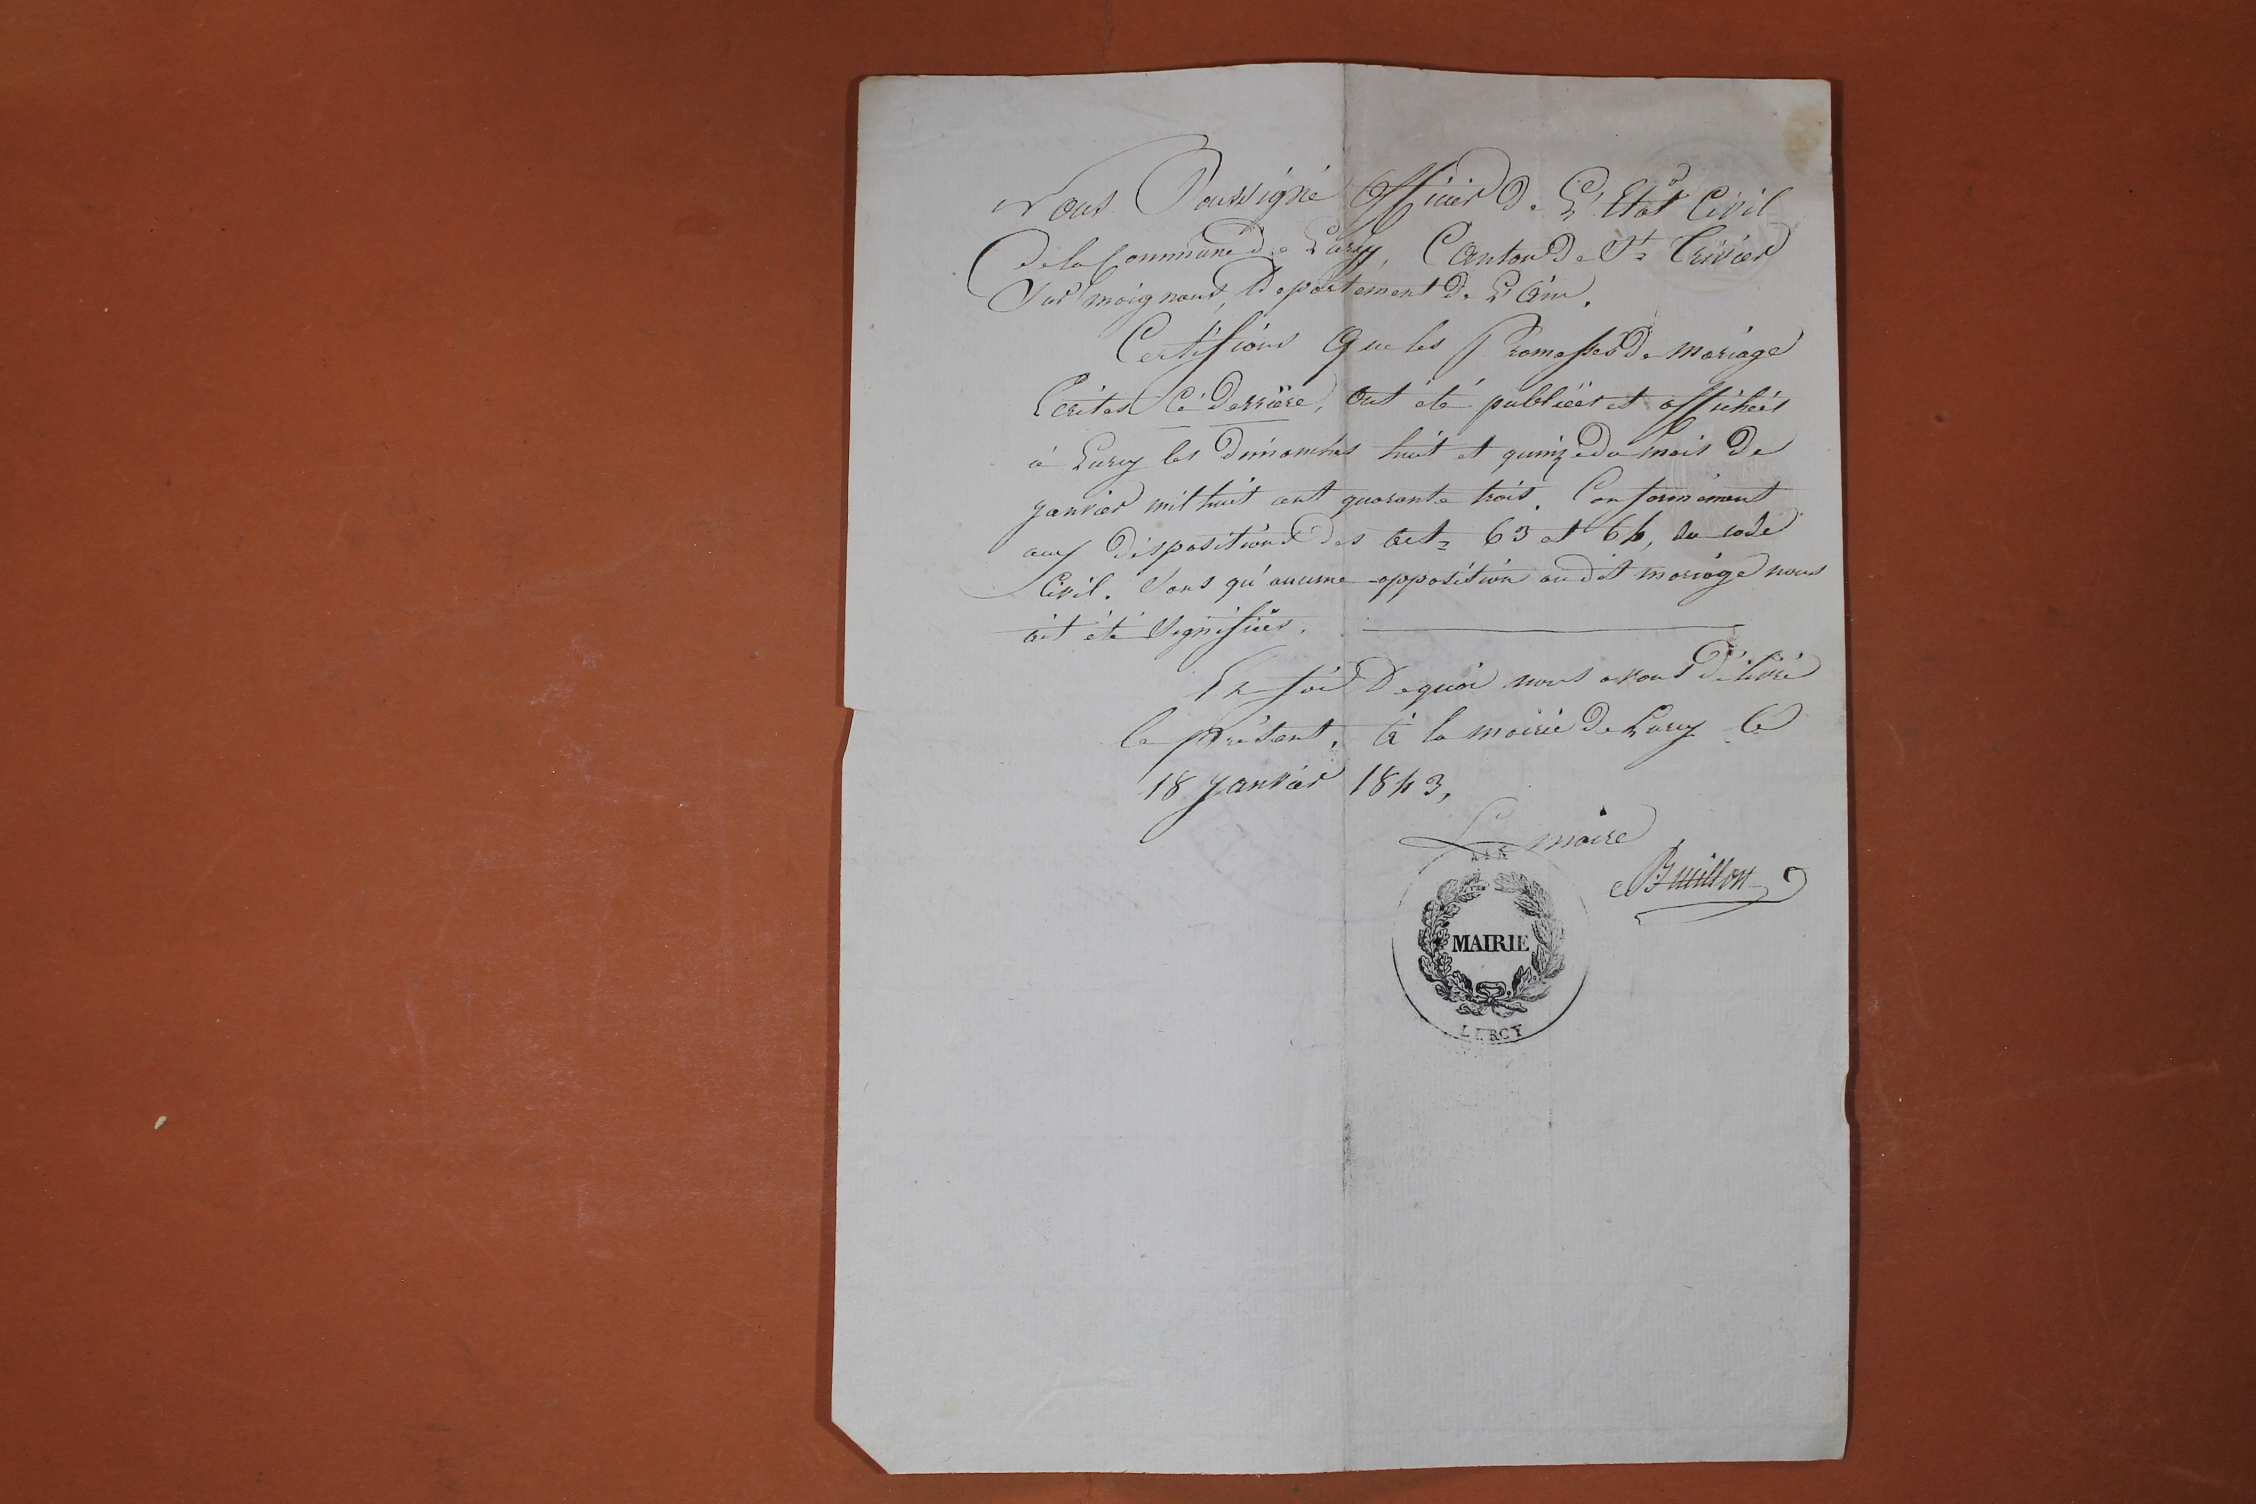 Nous Soussigné Officier De L'Etat Civil
De la Commune De Lurcy, Canton De St Trivier
Sur moignans, Departement De L'Ain.
Certifions Que les Promesses De mariage
Ecrites Cé Derriere, Ont été publiées et affichées
à Lurcy les Dimanches huit et quinze du mois De
janvier mil huit cent quarante trois. Conformément
aux Dispositions des art. 63 et 64, du code
Civil. Sans qu'aucune opposition au dit mariage nous
ait été Signifiées.
En foi De quoi nous avons Délivré
le présent. A la mairie De Lurcy Ce
18 Janvier 1843,
Le maire
AIN
MAIRIE
LURCY